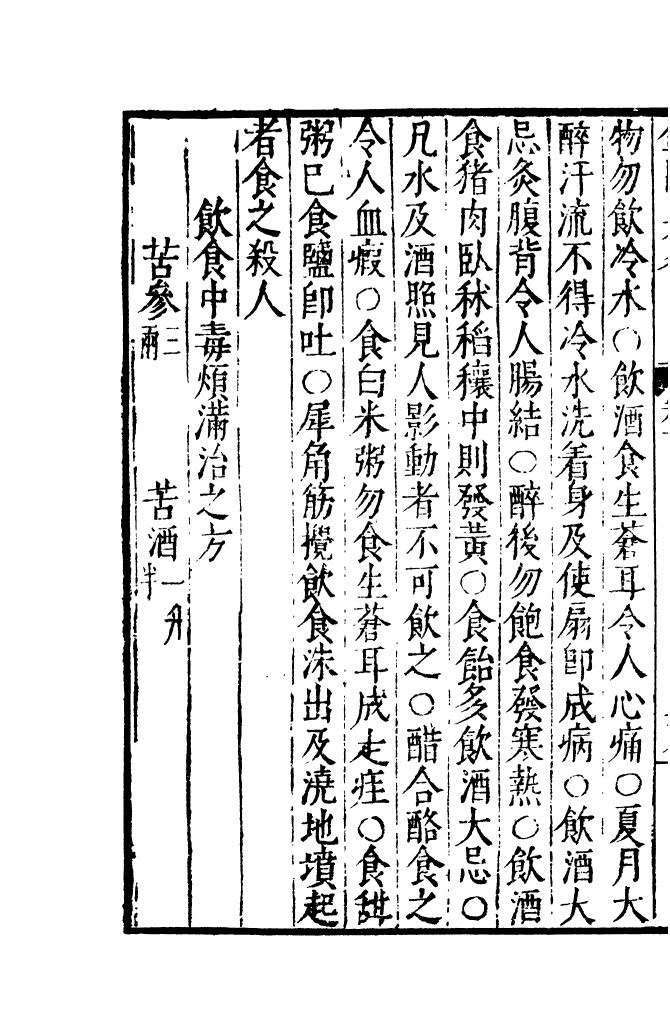 物勿飲冷水○飲酒食生蒼耳令人心痛○夏月大
醉汗流不得冷水洗着身及使扇即成病○飲酒大
忌灸腹背令人腸結○醉後勿飽食發寒熱○飲酒
食猪肉臥秫稻穰中則發黃○食飴多飲酒大忌○
凡水及酒照見人影動者不可飲之○醋合酪食之
令人血瘕○食白米粥勿食生蒼耳成走疰○食甜
粥巳食鹽即吐○犀角筯攪飲食沫出及澆地墳起
者食之殺人
飲食中毒煩滿治之方
苦參三兩 苦酒一升半